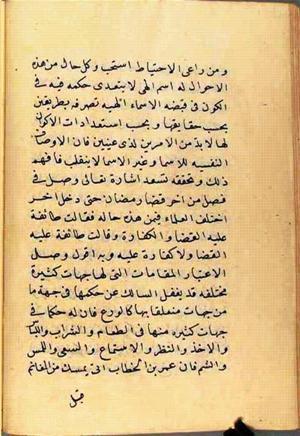 ومن راعى الاحتياط استحب وكل حال من هذه
الاحوال له اسم الهي لا يتعدى حكمه فيه في
الكون في قبضه الاسماء الهيه تصرفه بطريقين
بحسب حقايقها وبحسب استعدادات الاكوان
لها لا بد من الامرين لذى عينين فان الاوصاف
النفسيه للاسما وغير الاسما لا ينقلب فافهم
ذلك وتحققه تسعد اشارة تعالى وصل في
فصل من اخر قضا رمضان حتى دخل اخر
اختلف العلماء فيمن هذه حاله فقالت طائفة
عليه القضا والكفارة وقالت طائفة عليه
القضا ولا كفارة عليه وبه اقول وصل
الاعتبار المقامات التي لها جهات كثيرة
مختلفه قد يغفل السالك عن حكمها في جهة ما
من جهات متعلقاتها كالورع فان له حكما في
جهات كثيره منها في الطعام والشراب واللباس
والاخذ والنظر والاستماع والسعي واللمس
والشم فان عمر بن الخطاب اتى بمسك من المغانم
قبل